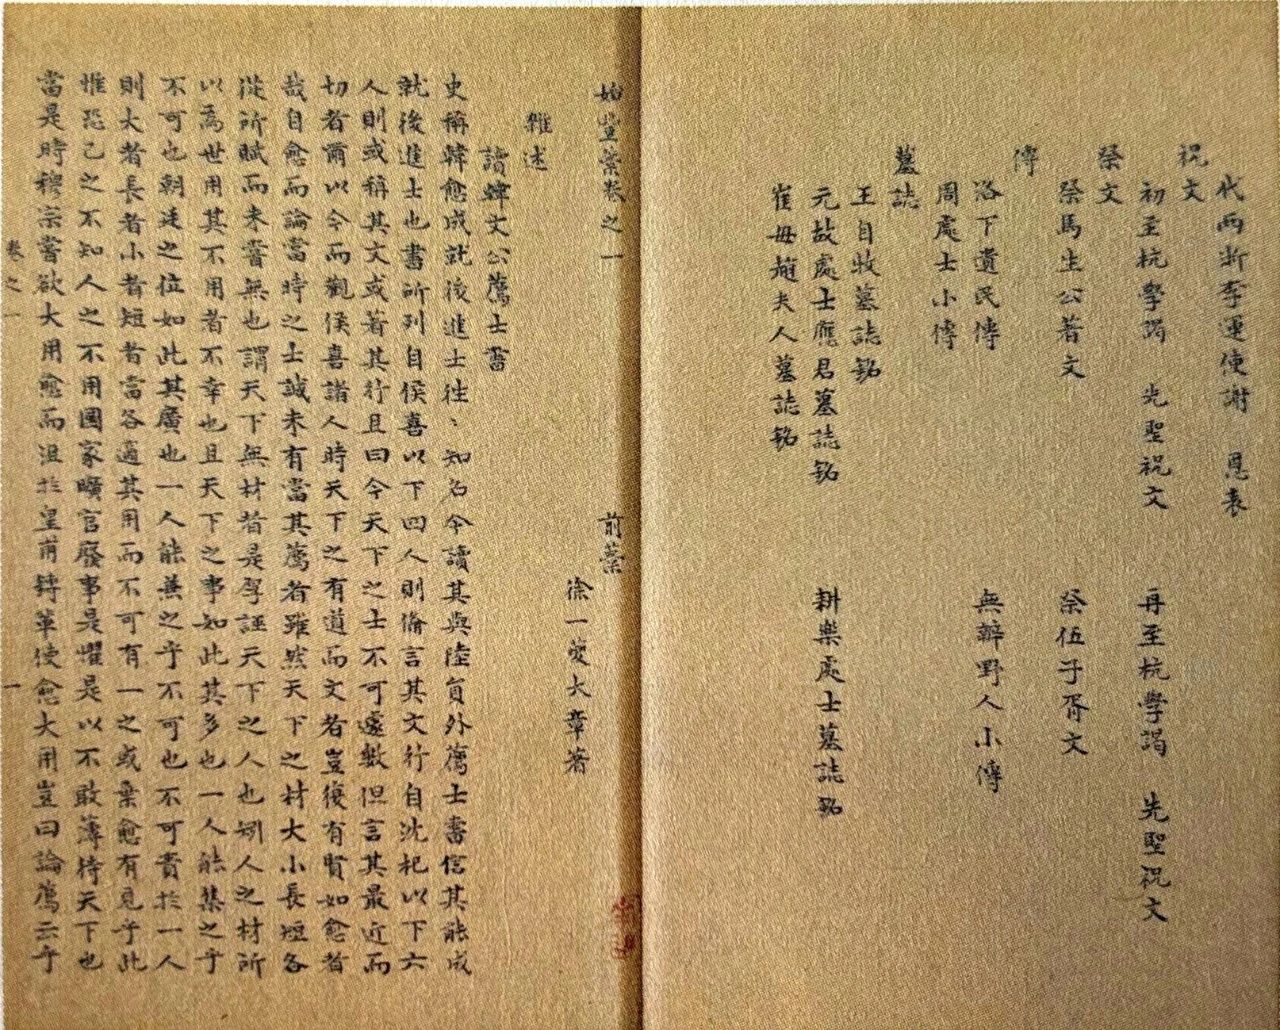 代兩浙李運使謝　恩表
祝文
初至杭學謁　先聖祝文　再至杭學謁　先聖祝文
祭文
祭馬生公著文　祭伍子胥文
傳
洛下遺民傳　無辯野人小傳
周處士小傳
墓誌
王自牧墓誌銘
元故處士應君墓誌銘　耕樂處士墓誌銘
崔母趙夫人墓誌銘
始豐藁卷之一　前藁
徐一夔大章著
雜述
讀韓文公薦士書
史稱韓愈成就後進士徃〻知名今讀其與陸員外薦士書信其能成
就後進士也書所列自侯喜以下四人則偹言其文行自沈杞以下六
人則或稱其文或著其行且曰今天下之士不可遽數但言其最近而
切者爾以今而觀侯喜諸人時天下之有道而文者豈復有賢如愈者
哉自愈而論當時之士誠未有當其薦者雖然天下之材大小長短各
從所賦而未嘗無也謂天下無材者是厚誣天下之人也矧人之材所
以為世用其不用者不幸也且天下之事如此其多也一人能集之乎
不可也朝廷之位如此其廣也一人能兼之乎不可也不可責於一人
則大者長者小者短者當各適其用而不可有一之或棄愈有見乎此
惟恐己之不知人之不用國家曠官廢事是懼是以不敢薄待天下也
當是時穆宗嘗欲大用愈而沮於皇甫鎛輩使愈大用豈曰論薦云乎
卷之一　一